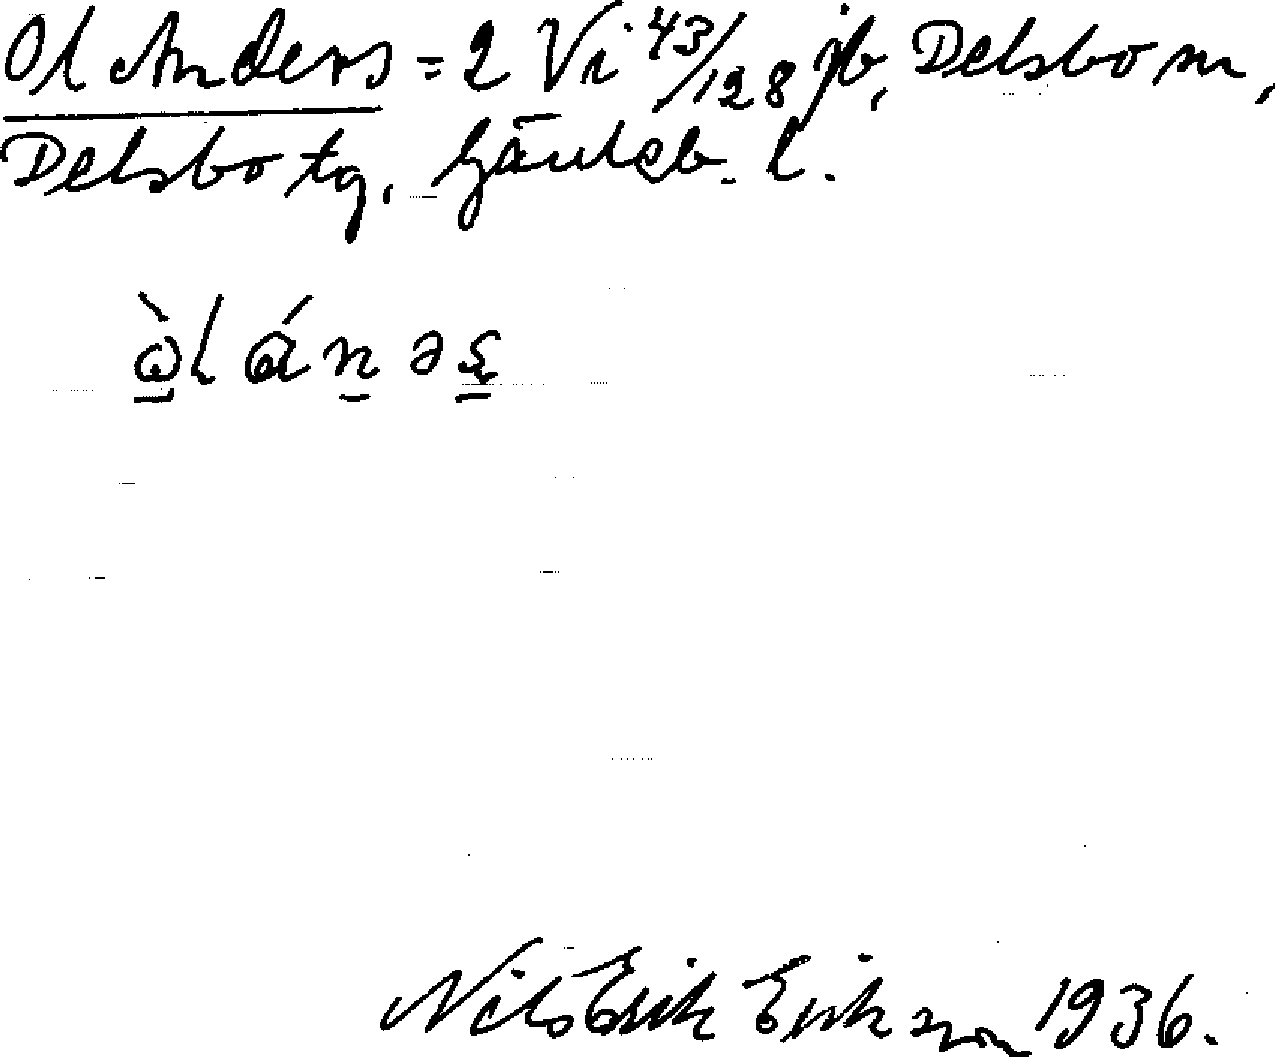 Ol Anders = 2 Vi 43/128 jb, Delsbo sn,
Delsbo tg, Gävleb. l.
ὰl ánəs
Nils Erik Eriksson 1936.